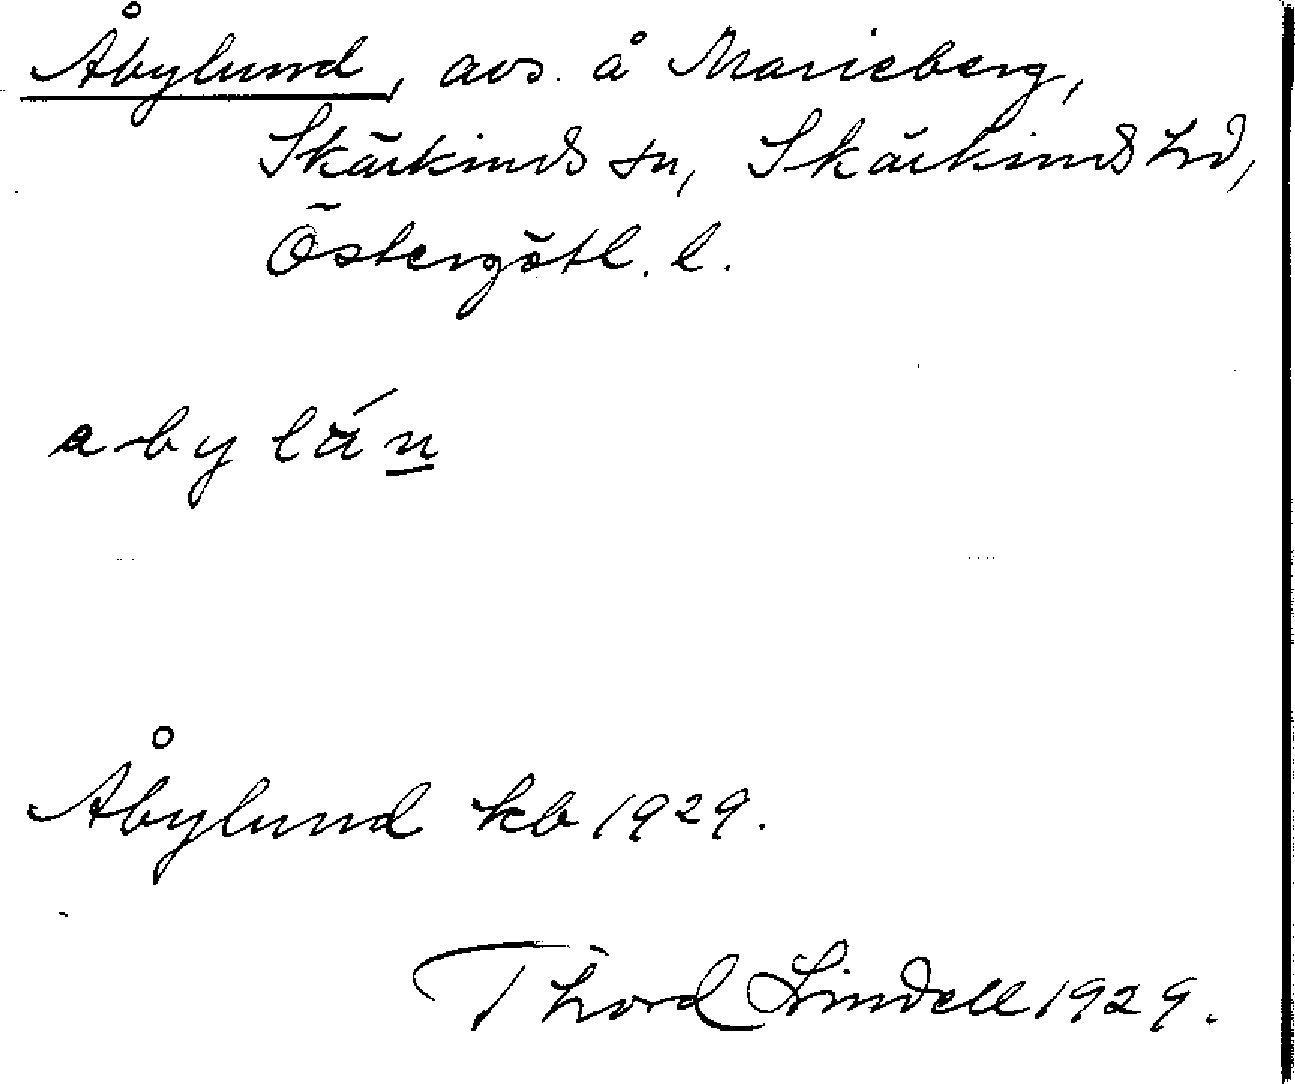 Åbylund, avs. å Marieberg,
Skärkinds sn, Skärkinds hd,
Östergötl. l.
Åbylund kb 1929.
Thord Lindell 1929.